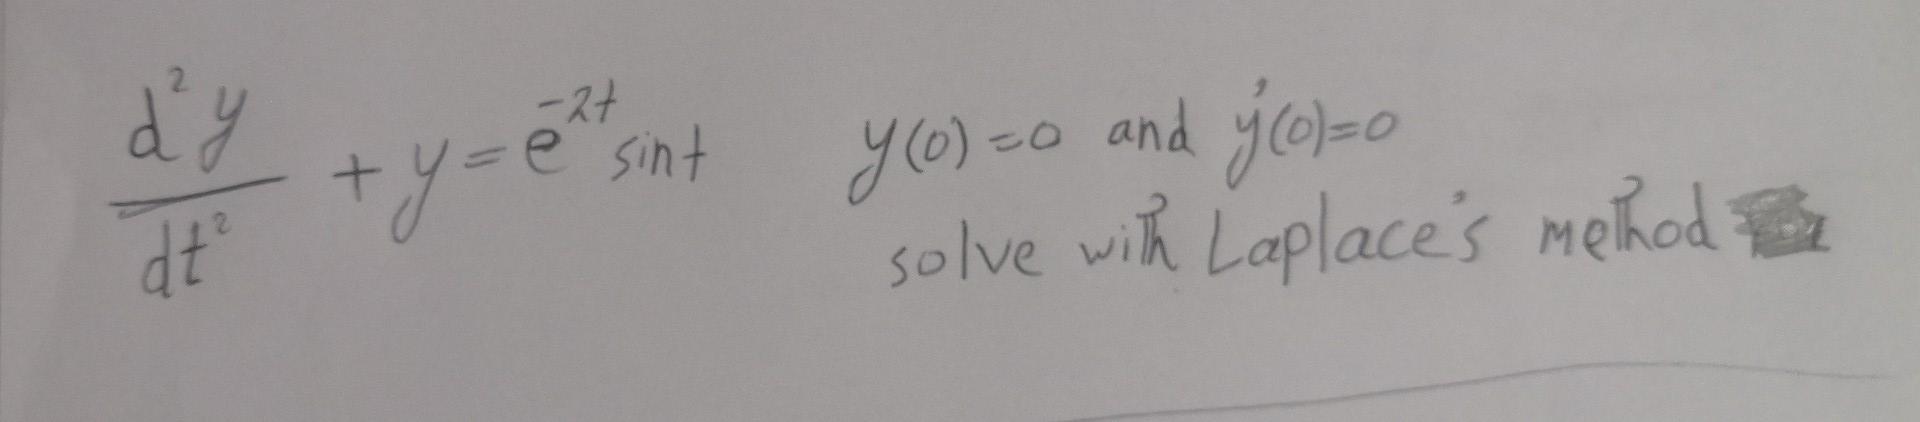 d²y/dt² + y = e^-2t sint y(0)=0 and ẏ(0)=0
solve with Laplace's method